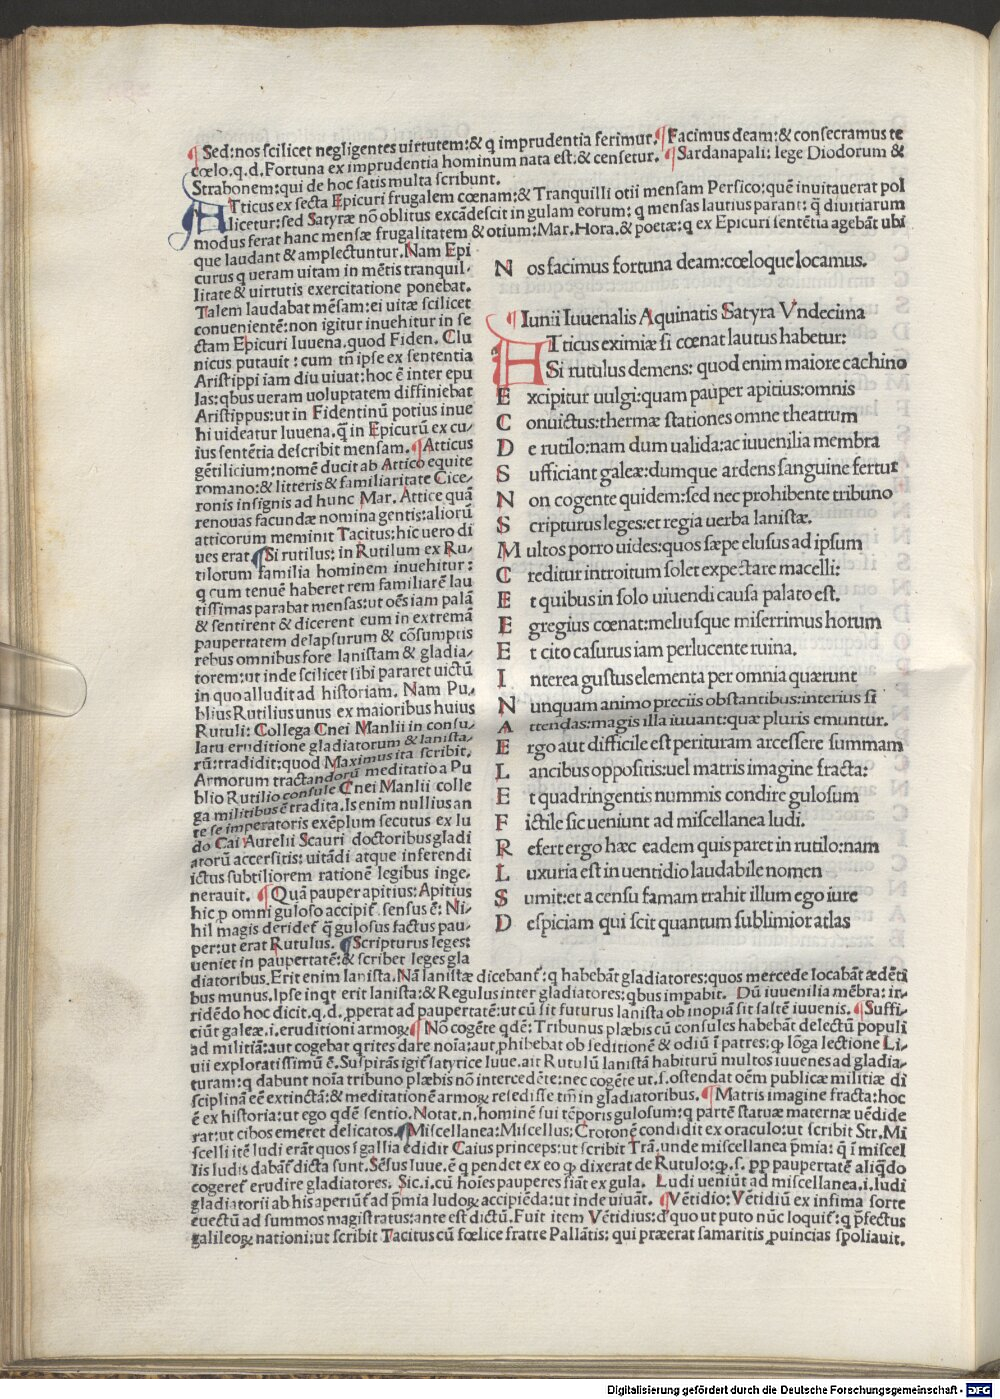 ¶ Sed: nos scilicet negligentes uirtutem:& q imprudentia ferimur. ¶ Facimus deam:& consecramus te
cœlo.q.d. Fortuna ex imprudentia hominum nata est:& censetur. ¶ Sardanapali: lege Diodorum &
Strabonem:qui de hoc satis multa scribunt.
ATticus ex secta Epicuri frugalem cœnam:& Tranquilli otii mensam Persico:quē inuitauerat pol
licetur:sed Satyræ nō oblitus excādescit in gulam eorum: q mensas lautius parant: q̄ diuitiarum
modus ferat hanc mensæ frugalitatem & otium:Mar. Hora.& poetæ:q ex Epicuri sentētia agebāt ubi
que laudant & amplectuntur. Nam Epi
curus q ueram uitam in mētis tranquil-
litate & uirtutis exercitatione ponebat.
Talem laudabat mēsam:ei uitæ scilicet
conuenientē:non igitur inuehitur in se
ctam Epicuri Iuuena.quod Fiden. Clu
nicus putauit : cum tn̄ ipse ex sententia
Aristippi iam diu uiuat: hoc ē inter epu
las:qbus ueram uoluptatem diffiniebat
Aristippus:ut in Fidentinū potius inue
hi uideatur Iuuena.q̄ in Epicurū ex cu-
ius sentētia describit mensam. ¶ Atticus
gētilicium:nomē ducit ab Attico equite
romano:& litteris & familiaritate Cice-
ronis insignis ad hunc Mar. Attice quā
renouas facundæ nomina gentis:aliorū
atticorum meminit Tacitus:hic uero di
ues erat. ¶ Si rutilus: in Rutilum ex Ru-
tilorum familia hominem inuehitur:
q cum tenuē haberet rem familiarē lau
tissimas parabat mensas:ut oēs iam palā
& sentirent & dicerent eum in extremā
paupertatem delapsurum & cōsumptis
rebus omnibus fore lanistam & gladia-
torem:ut inde scilicet sibi pararet uictū
in quo alludit ad historiam. Nam Pu-
blius Rutilius unus ex maioribus huius
Rutuli: Collega Cnei Manlii in consu-
latu eruditione gladiatorum & lanista-
rū:tradidit:quod Maximus ita scribit.
Armorum tractandorū meditatio a Pu
blio Rutilio consule Cnei Manlii colle
ga militibus ē tradita. Is enim nullius an
te se imperatoris exēplum secutus ex lu
do Cai Aurelii Scauri doctoribus gladi
atorū accersitis: uitādi atque inferendi
ictus subtiliorem rationē legibus inge-
nerauit. ¶ Quā pauper apitius: Apitius
hic p omni guloso accipit̄ sensus ē: Ni-
hil magis deridet̄ q̄ gulosus factus pau-
per:ut erat Rutulus. ¶ Scripturus leges:
ueniet in paupertatē:& scribet leges gla
N os facimus fortuna deam:cœloque locamus.
¶ Iunii Iuuenalis Aquinatis Satyra Vndecima
ATticus eximiæ si cœnat lautus habetur:
Si rutulus demens: quod enim maiore cachino
E xcipitur uulgi:quam pauper apitius:omnis
C onuictus:thermæ stationes omne theatrum
D e rutilo:nam dum ualida:ac iuuenilia membra
S ufficiant galeæ:dumque ardens sanguine fertur
N on cogente quidem:sed nec prohibente tribuno
S cripturus leges:et regia uerba lanistæ.
M ultos porro uides:quos sæpe elusus ad ipsum
C reditur introitum solet expectare macelli:
E t quibus in solo uiuendi causa palato est.
E gregius cœnat:meliusque miserrimus horum
E t cito casurus iam perlucente ruina.
I nterea gustus elementa per omnia quærunt
N unquam animo preciis obstantibus:interius si
A ttendas:magis illa iuuant:quæ pluris emuntur.
E rgo aut difficile est perituram arcessere summam
L ancibus oppositis:uel matris imagine fracta:
E t quadringentis nummis condire gulosum
F ictile sic ueniunt ad miscellanea ludi.
R efert ergo hæc eadem quis paret in rutilo:nam
L uxuria est in uentidio laudabile nomen
S umit:et a censu famam trahit illum ego iure
D espiciam qui scit quantum sublimior atlas
diatoribus. Erit enim lanista. Nā lanistæ dicebant̄: q habebāt gladiatores:quos mercede locabāt ædēti
bus munus. Ipse inqt erit lanista:& Regulus inter gladiatores:qbus impabit. Dū iuuenilia mēbra: ir-
ridēdo hoc dicit.q.d.pperat ad paupertatē:ut cū sit futurus lanista ob inopiā sit saltē iuuenis. ¶ Suffi-
ciūt galeæ.i.eruditioni armoꝝ. ¶ Nō cogēte qdē: Tribunus plæbis cū consules habebāt delectū populi
ad militiā:aut cogebat qrites dare noīa:aut phibebat ob seditionē & odiū ī patres:q lōga lectione Li-
uii exploratissimū ē. Suspirās igit̄ satyrice Iuue.ait Rutulū lanistā habiturū multos iuuenes ad gladia-
turam:q dabunt noīa tribuno plæbis nō intercedēte:nec cogēte ut.s.ostendat oēm publicæ militiæ di
sciplinā eē extinctā:& meditationē armoꝝ resedisse tm̄ in gladiatoribus. ¶ Matris imagine fracta:hoc
ē ex historia:ut ego qdē sentio. Notat.n.hominē sui tēporis gulosum:q partē statuæ maternæ uēdide
rat:ut cibos emeret delicatos. ¶ Miscellanea: Miscellus: Crotonē condidit ex oraculo:ut scribit Str. Mi
scelli itē ludi erāt quos ī gallia edidit Caius princeps:ut scribit Trā.unde miscellanea pmia: q ī miscel
lis ludis dabāt̄ dicta sunt. Sēsus Iuue.ē q pendet ex eo qꝫ dixerat de Rutulo:qꝫ.s.pp paupertatē aliqdo
cogeret̄ erudire gladiatores. Sic.i.cū hoīes pauperes siāt ex gula. Ludi ueniūt ad miscellanea.i.ludi
gladiatorii ab his aperiūt̄ ad pmia ludoꝝ accipiēda:ut inde uiuāt. ¶ Vētidio: Vētidiū ex infima sorte
euectū ad summos magistratus:ante est dictū. Fuit item Vētidius:d quo ut puto nūc loquit̄: q pfectus
galileoꝝ nationi:ut scribit Tacitus cū fœlice fratre Pallātis: qui præerat samaritis puincias spoliauit.
Digitalisierung gefördert durch die Deutsche Forschungsgemeinschaft - DFG